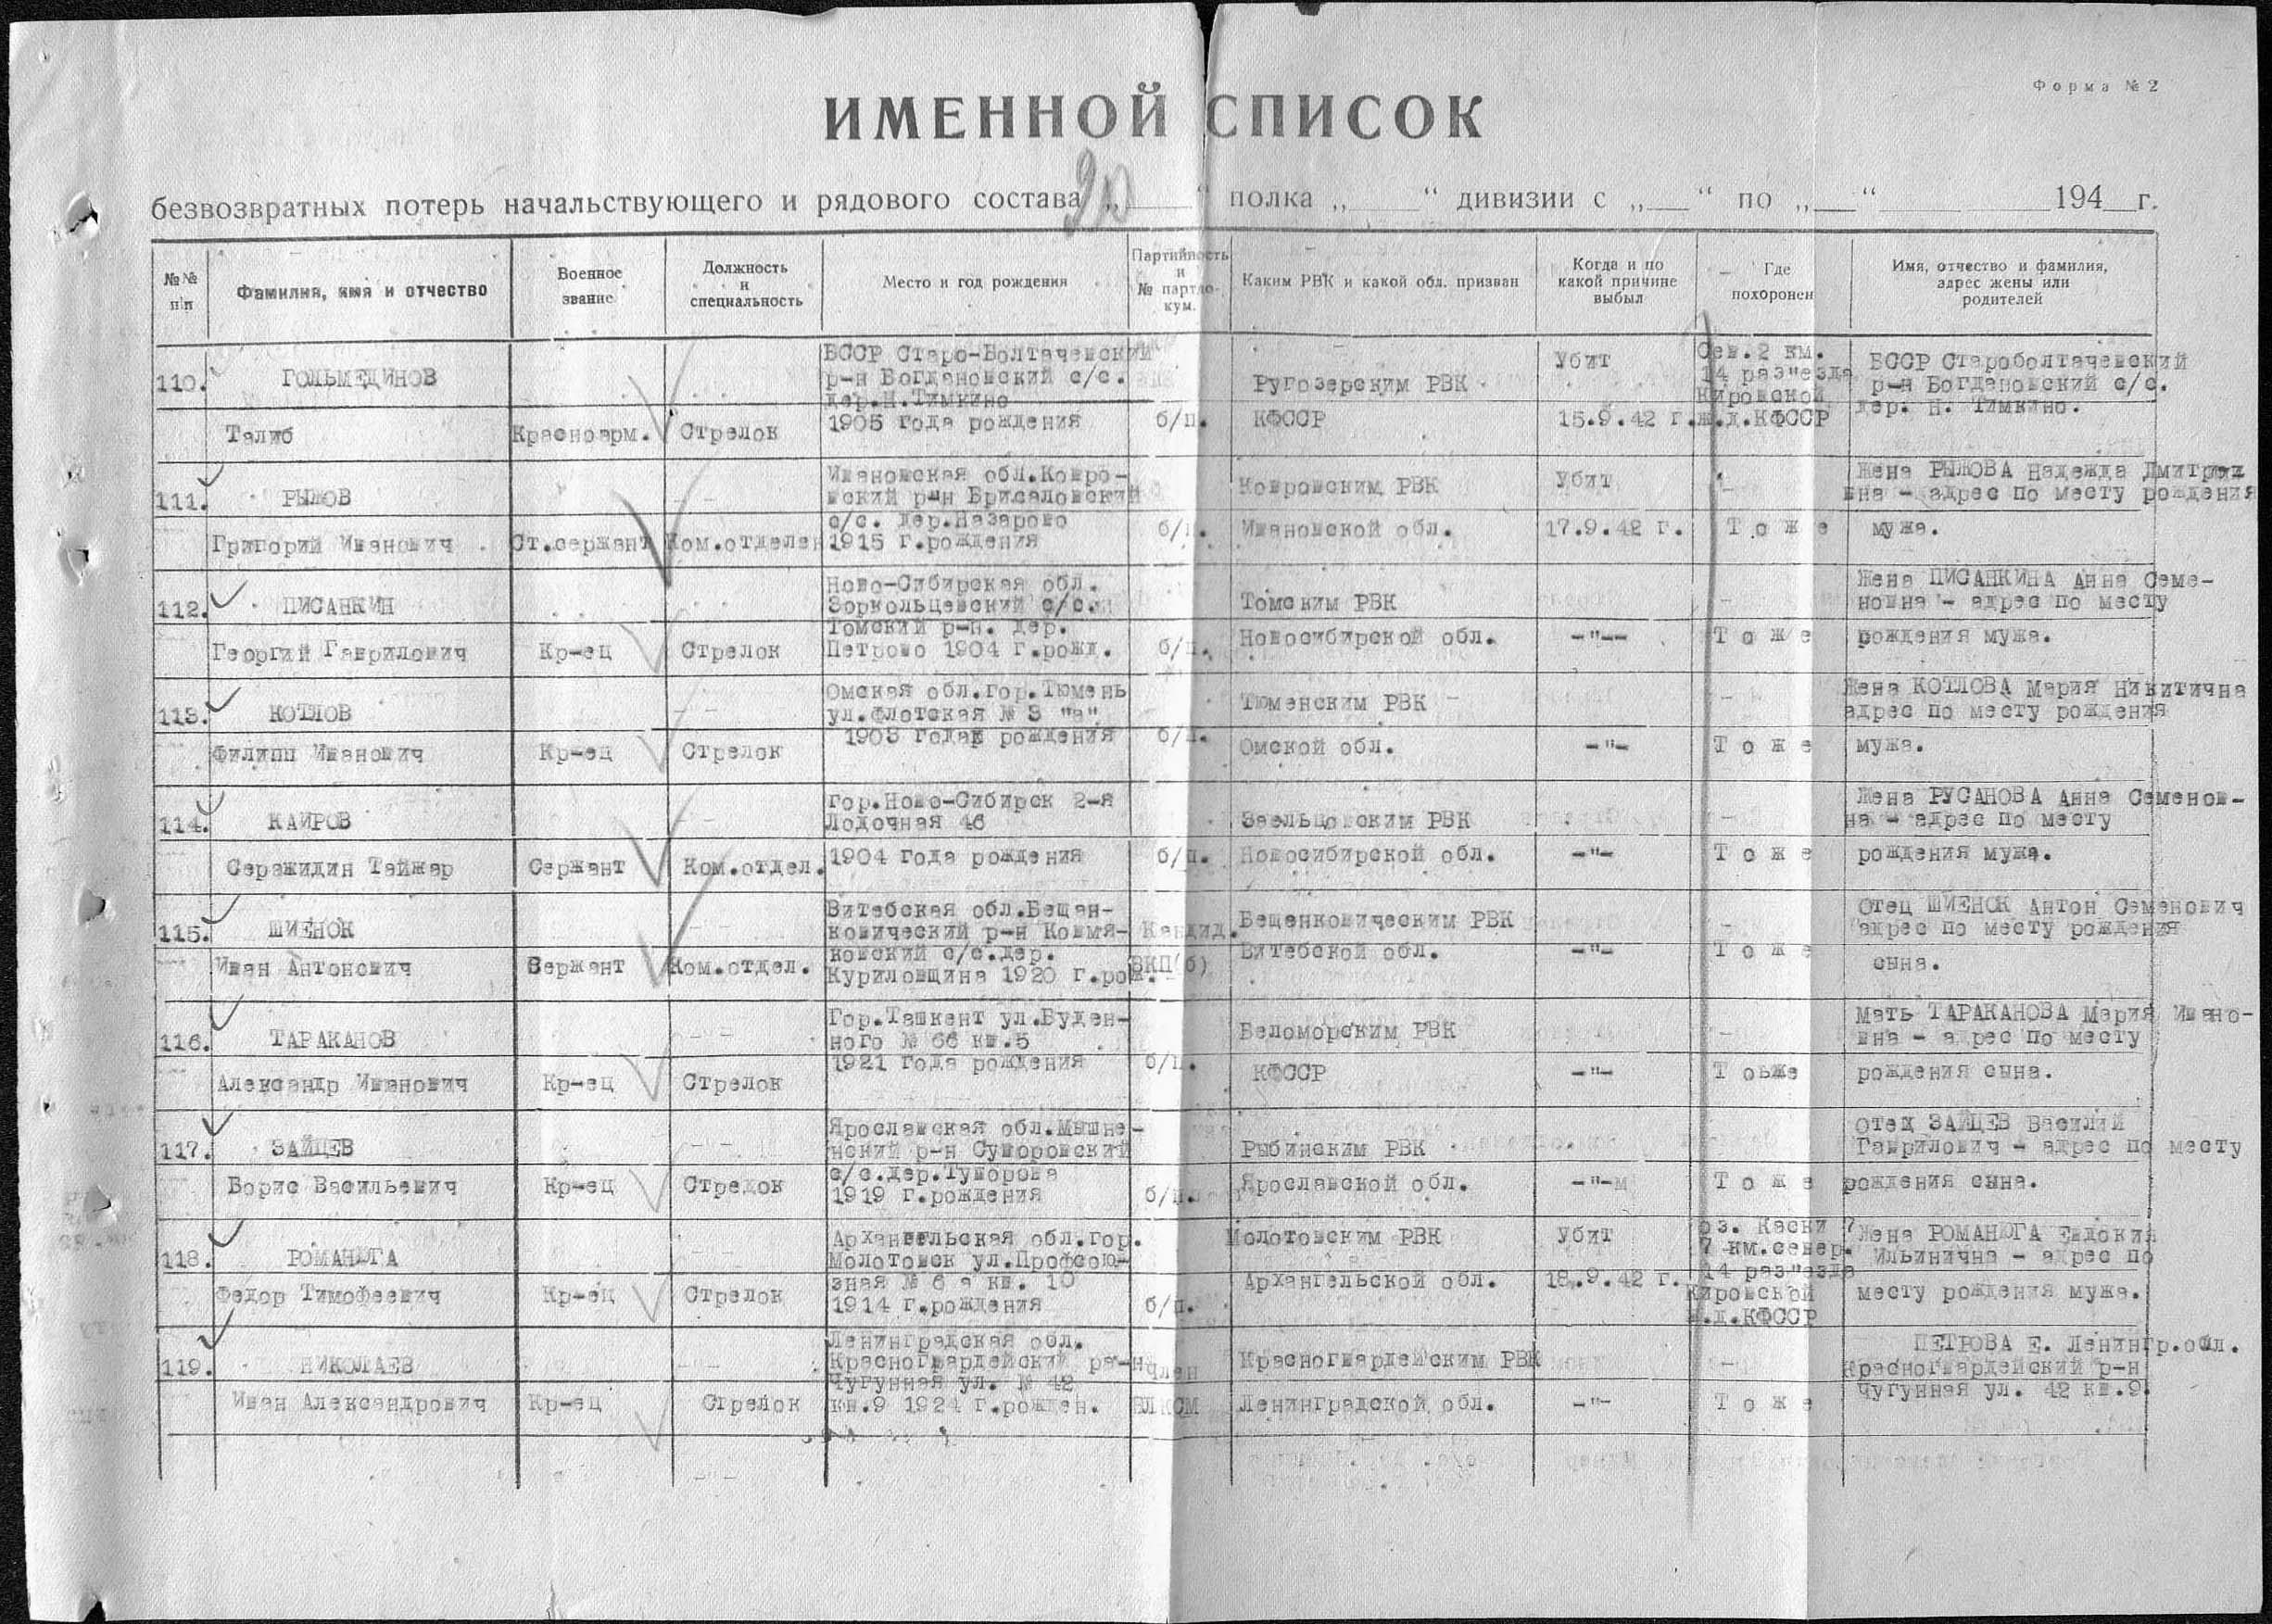 Форма № 2
ИМЕННОЙ СПИСОК
20
безвозвратных потерь начальствующего и рядового состава „ “ полка „ “ дивизии с „ “ по „ “ 194 г.
№№ п\п
Фамилия, имя и отчество
Военное звание
Должность и специальность
Место и год рождения
Партийность и № партдокум.
Каким РВК и какой обл. призван
Когда и по какой причине выбыл
Где похоронен
Имя, отчество и фамилия, адрес жены или родителей
110.
ГОЛЬМЕДИНОВ
Талиб
Красноарм.
Стрелок
БССР Старо-Болтачевский
р-н Богдановский с/с.
дер.Н.Тимкино
1905 года рождения
б/п.
Ругозерским РВК
КФССР
Убит
15.9.42 г.
Сев.2 км.
14 раз"езда
Кировской
ж.д.КФССР
БССР Староболтачевский
р-н Богдановский с/с.
дер. Н. Тимкино.
111.
РЫЖОВ
Григорий Иванович
Ст.сержант
Ком.отделен
Ивановская обл.Ковро-
вский р-н Брисаловский
с/с. дер.Назарово
1915 г.рождения
б/п.
Ковровским РВК
Ивановской обл.
Убит
17.9.42 г.
Тоже
Жена РЫЖОВА Надежда Дмитрие
вна - адрес по месту рождения
мужа.
112.
ПИСАНКИН
Георгий Гаврилович
Кр-ец
Стрелок
Ново-Сибирская обл.
Зоркольцевский с/с.
Томский р-н. дер.
Петрово 1904 г.рожд.
б/п.
Томским РВК
Новосибирской обл.
-"--
Тоже
Жена ПИСАНКИНА Анна Семе-
новна - адрес по месту
рождения мужа.
113.
КОТЛОВ
Филипп Иванович
Кр-ец
Стрелок
Омская обл.гор.Тюмень
ул.Флотская № 3 "а"
1903 года рождения
б/п.
Тюменским РВК
Омской обл.
-"-
Тоже
Жена КОТЛОВА Мария Никитична
адрес по месту рождения
мужа.
114.
КАИРОВ
Серажидин Тайжар
Сержант
Ком.отдел.
Гор.Ново-Сибирск 2-я
Лодочная 46
1904 года рождения
б/п.
Заельцовским РВК
Новосибирской обл.
-"-
Тоже
Жена РУСАНОВА Анна Семенов-
на - адрес по месту
рождения мужа.
115.
ШИЕНОК
Иван Антонович
Вержант
Ком.отдел.
Витебская обл.Бешен-
ковический р-н Ковмя-
ковский с/с.дер.
Куриловщина 1920 г.рож.
Кандид.
ВКП(б)
Бешенковическим РВК
Витебской обл.
-"-
Тоже
Отец ШИЕНОК Антон Семенович
адрес по месту рождения
сына.
116.
ТАРАКАНОВ
Александр Иванович
Кр-ец
Стрелок
Гор.Ташкент ул.Буден-
ного № 66 кв.5
1921 года рождения
б/п.
Беломорским РВК
КФССР
-"-
Тоьже
Мать ТАРАКАНОВА Мария Ивано-
вна - адрес по месту
рождения сына.
117.
ЗАЙЦЕВ
Борис Васильевич
Кр-ец
Стрелок
Ярославская обл.Мышке-
нский р-н Суворовский
с/с.дер.Туморова
1919 г.рождения
б/п.
Рыбинским РВК
Ярославской обл.
-"-м
Тоже
Отец ЗАЙЦЕВ Василий
Гаврилович - адрес по месту
рождения сына.
118.
РОМАНЮГА
Федор Тимофеевич
Кр-ец
Стрелок
Архангельская обл.гор.
Молотовск ул.Профсою-
зная № 6 а кв. 10
1914 г.рождения
б/п.
Молотовским РВК
Архангельской обл.
Убит
18.9.42 г.
оз. Каски 7
7 км.север.
14 раз"езда
Кировской
ж.д.КФССР
Жена РОМАНЮГА Евдокия
Ильинична - адрес по
месту рождения мужа.
119.
НИКОЛАЕВ
Иван Александрович
Кр-ец
Стрелок
Ленинградская обл.
Красногвардейский ра-н
Чугунная ул. № 42
кв.9 1924 г.рожден.
член
ВЛКСМ
Красногвардейским РВК
Ленинградской обл.
-"-
Тоже
ПЕТРОВА Е. Ленингр.обл.
Красногвардейский р-н
Чугунная ул. 42 кв.9.